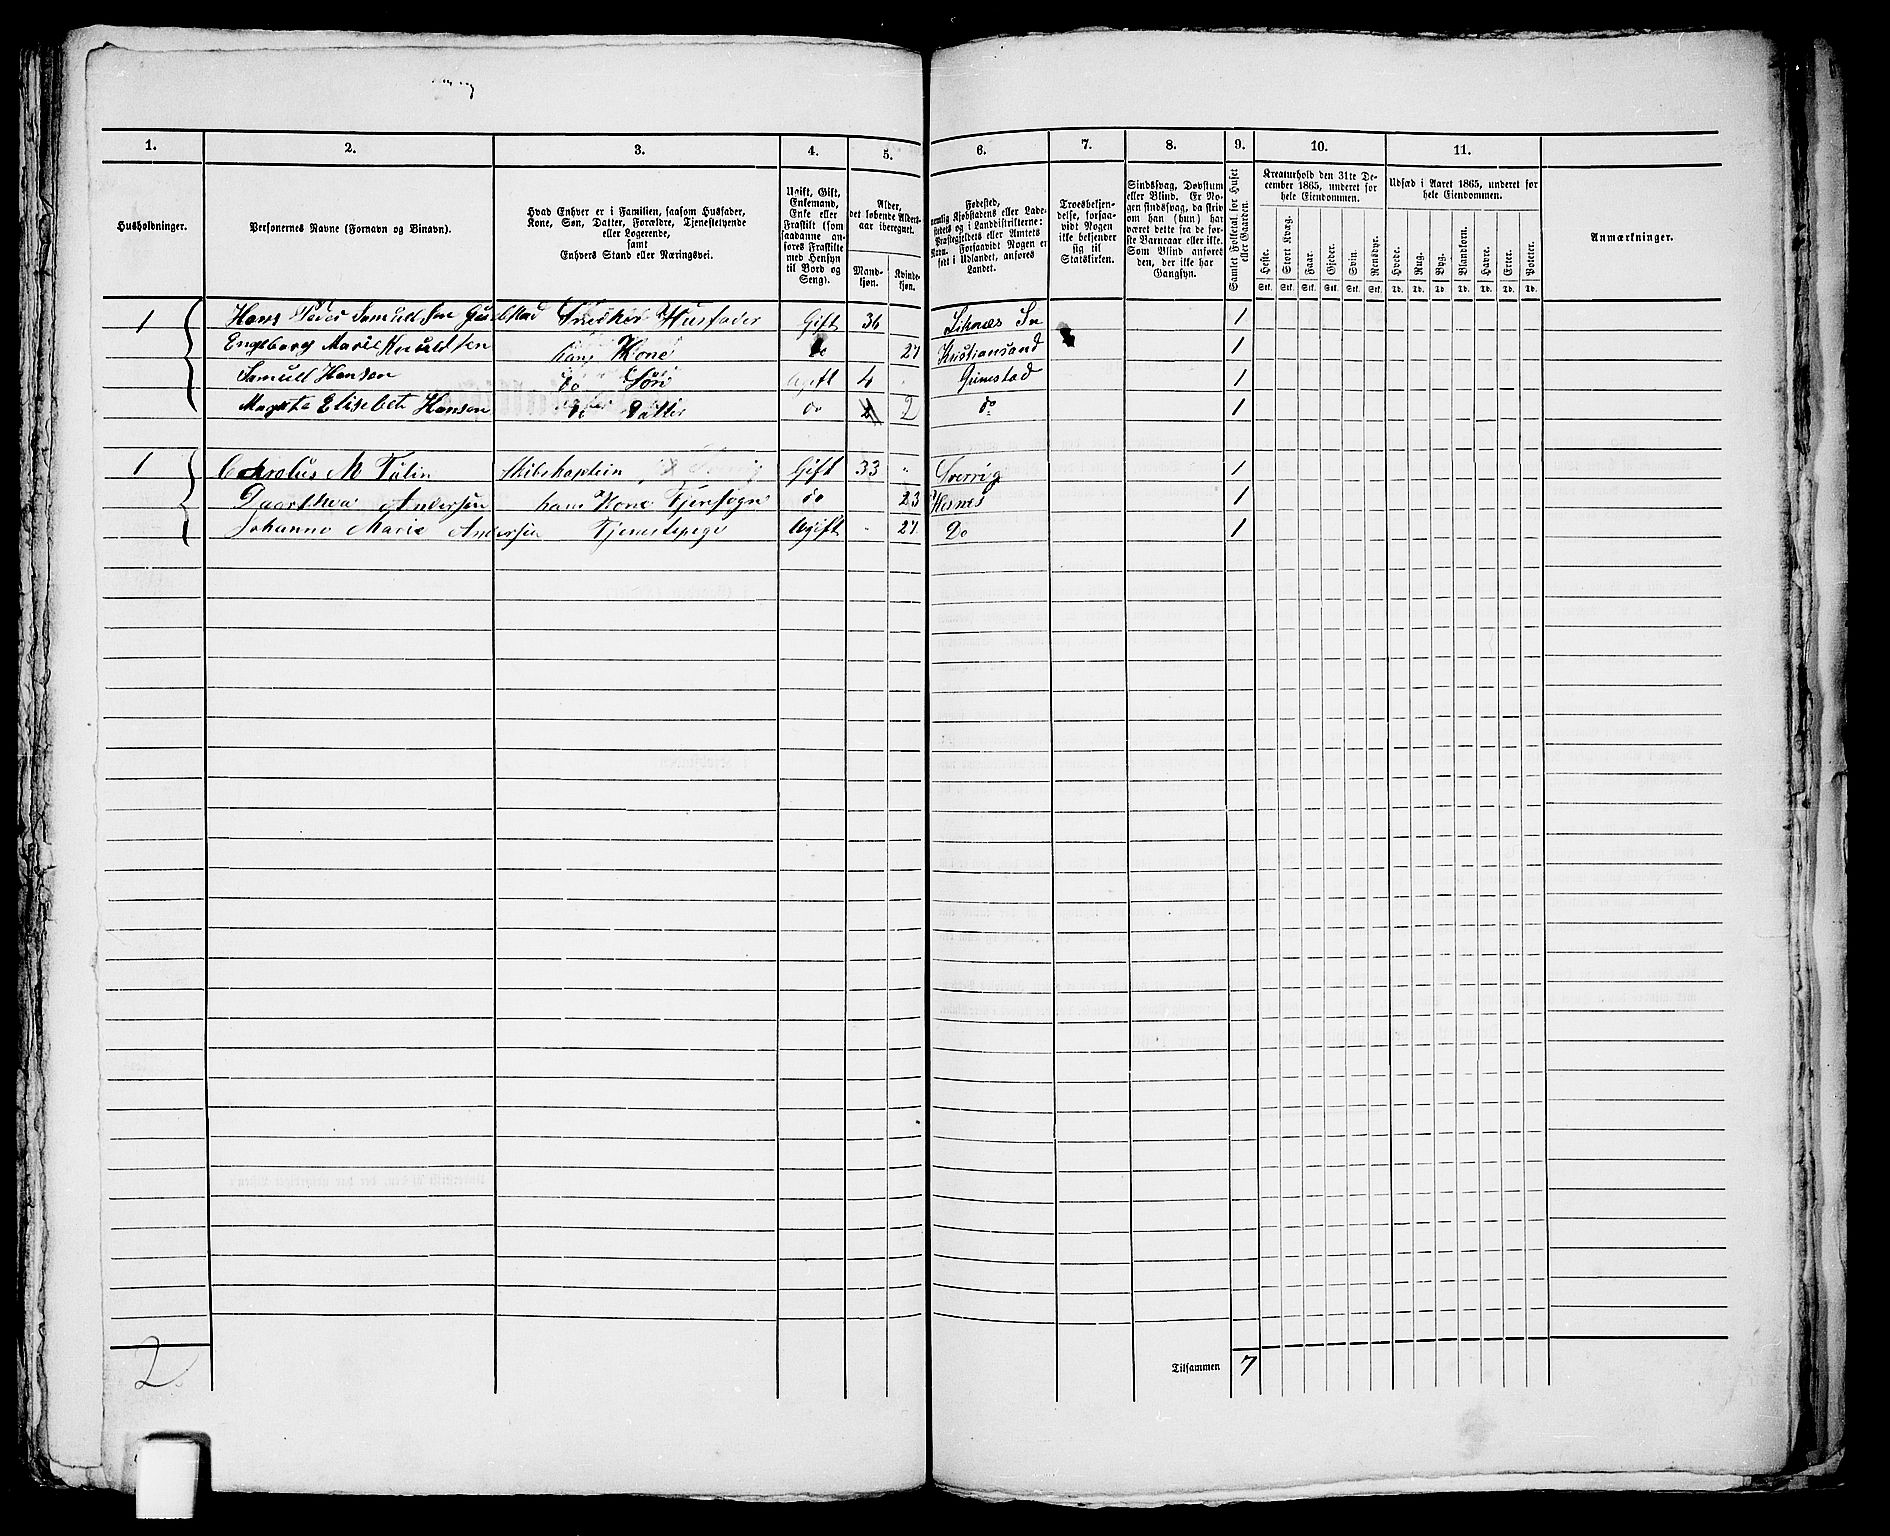 1. 2. 3. 4. 5. 6. 7. 8. 9. 10. 11.
Husholdninger.
Personernes Navne (Fornavn og Binavn).
Hvad Enhver er i Familien, saasom Husfader,
Kone, Søn, Datter, Forældre, Tjenestetyende
eller Logerende,
samt
Enhvers Stand eller Næringsvei.
Ugift, Gift,
Enkemand,
Enke eller
Fraskilt (som
saadanne an-
føres Fraskilte
med Hensyn
til Bord og
Seng).
Alder,
det løbende Alders-
aar iberegnet.
Mand-
kjøn.
Kvinde-
kjøn.
Fødested,
nemlig Kjøbstadens eller Lade-
stedets og i Landdistrikterne:
Præstegjeldets eller Amtets
Navn. Forsaavidt Nogen er
født i Udlandet, anføres
Landet.
Troesbekjen-
delse, forsaa-
vidt Nogen
ikke bekjender
sig til
Statskirken.
Sindssvag, Døvstum
eller Blind. Er No-
gen sindssvag, da skriv
om han (hun) har
været dette fra de før-
ste Barneaar eller ikke.
Som Blind anføres
den, der ikke har
Gangsyn.
Samlet Folketal for Huset
eller Gaarden.
Kreaturhold den 31te De-
cember 1865, underet for
hele Eiendommen.
Heste. Stort Kvæg. Faar. Gjeder. Svin. Rensdyr.
Stk. Stk. Stk. Stk. Stk. Stk.
Udsæd i Aaret 1865, underet for
hele Eiendommen.
Hvede. Rug. Byg. Blandkorn. Havre. Erter. Poteter.
Td. Td. Td. Td. Td. Td. Td.
Anmærkninger.
1 Hans Peder Samuelsen Husfader Gift 36 1
Engeborg Marie Knudsen hans Kone Do 27 Kristiansand 1
Samuell Hansen Do Søn Ugift 4 Grimstad 1
Elisebet Hansen Do Datter do 2 do 1
1 M Tulin Skibskaptein Gift 33 Sverrig 1
Andersen hans Kone do 23 Hesnes 1
Johanne Marie Andersen Ugift 27 Do 1
2
Tilsammen 7